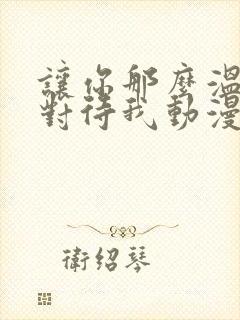 讓你那麼溫
對待我動漫
衛紹琴